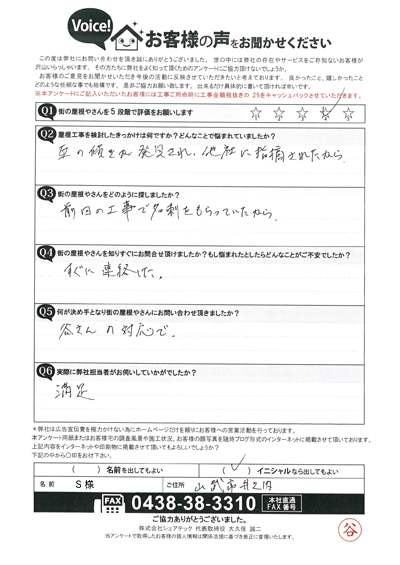 Voice!
お客様の声をお聞かせください
この度は弊社にお問い合わせを頂き誠にありがとうございました。世の中には弊社の存在やサービスをご存知ないお客様が
沢山いらっしゃいます。その方たちに弊社をよく知って頂くためのアンケートにご協力頂けないでしょうか。
お客様のご意見をお聞かせいただき今後の活動に反映させていただきたいと考えております。良かったこと、嬉しかったこと
どのような些細な事でも結構です。是非ご協力お願い致します。出来るだけ具体的に書いて頂ければ幸いです。
※本アンケートにご記入いただいたお客様には工事ご用命時に工事金額税抜きの2%をキャッシュバックさせていただきます。
Q1 街の屋根やさんを5段階で評価をお願いします
☆ ☆ ☆ ☆ ☆
Q2 屋根工事を検討したきっかけは何ですか？どんなことで悩まれていましたか？
瓦の傾きが発見され、他社に指摘されたから
Q3 街の屋根やさんをどのように探しましたか？
前回の工事で名刺をもらっていたから
Q4 街の屋根やさんを知りすぐにお問合せ頂けましたか？もし悩まれたとしたらどんなことがご不安でしたか？
すぐに連絡した。
Q5 何が決め手となり街の屋根やさんにお問い合わせ頂きましたか？
谷さんの対応で。
Q6 実際に弊社担当者がお伺いしていかがでしたか？
満足
＊弊社は広告宣伝費を極力かけない為にホームページだけを頼りにお客様への営業活動を行っております。
本アンケート用紙またはお客様宅の調査風景や施工状況、お客様の顔写真を随時ブログ形式のインターネットに掲載させて頂いております。
上記内容をインターネットや印刷物に掲載させて頂いてもよろしいでしょうか？
下記の中から〇印をお付け下さい。
（ ）名前を出してもよい （✓）イニシャルなら出してもよい
名前 S様 ご住所 山武市井之内
FAX 0438-38-3310 本社直通 FAX番号
ご協力ありがとうございました。
株式会社シェアテック 代表取締役 大久保 誠二
当アンケートで取得したお客様の個人情報は関係法規に基づき厳正に管理いたします。
谷